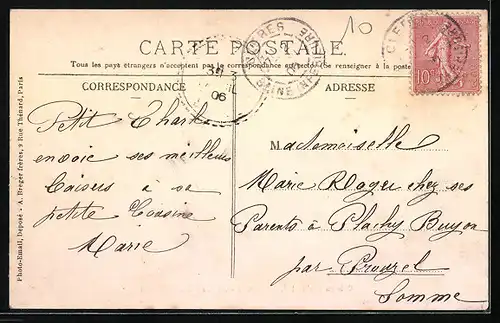 10
CARTE POSTALE
Tous les pays étrangers n'acceptent pas la correspondance au recto. (Se renseigner à la poste
CORRESPONDANCE
ADRESSE
06
10
Petit Charl
envoie ses meilleurs
baisers à sa
petite Cousine
Marie
Mademoiselle
Marie Roger chez ses
Parents à Plachy Buyon
par Prouzel
Somme
Photo-Email, Déposé - A. Breger frères, 9 Rue Thénard, Paris